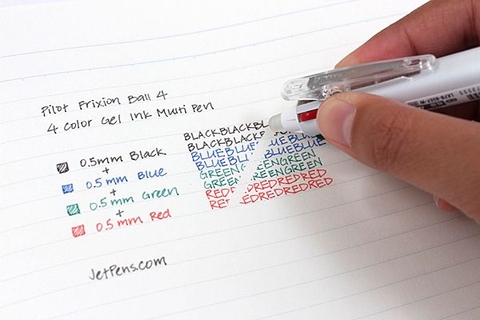 Pilot Frixion Ball 4
4 Color Gel Ink Multi Pen
0.5mm Black
+
0.5mm Blue
+
0.5mm Green
+
0.5mm Red
BLACKBLACKBL
BLACKBLACK
BLUEBLUE BLUE
BLUEBLU BLUEBLUE
GREEN EENGREEN
GREEN GREENGREEN
RED REDREDRED
RE EDREDRED
JetPens.com